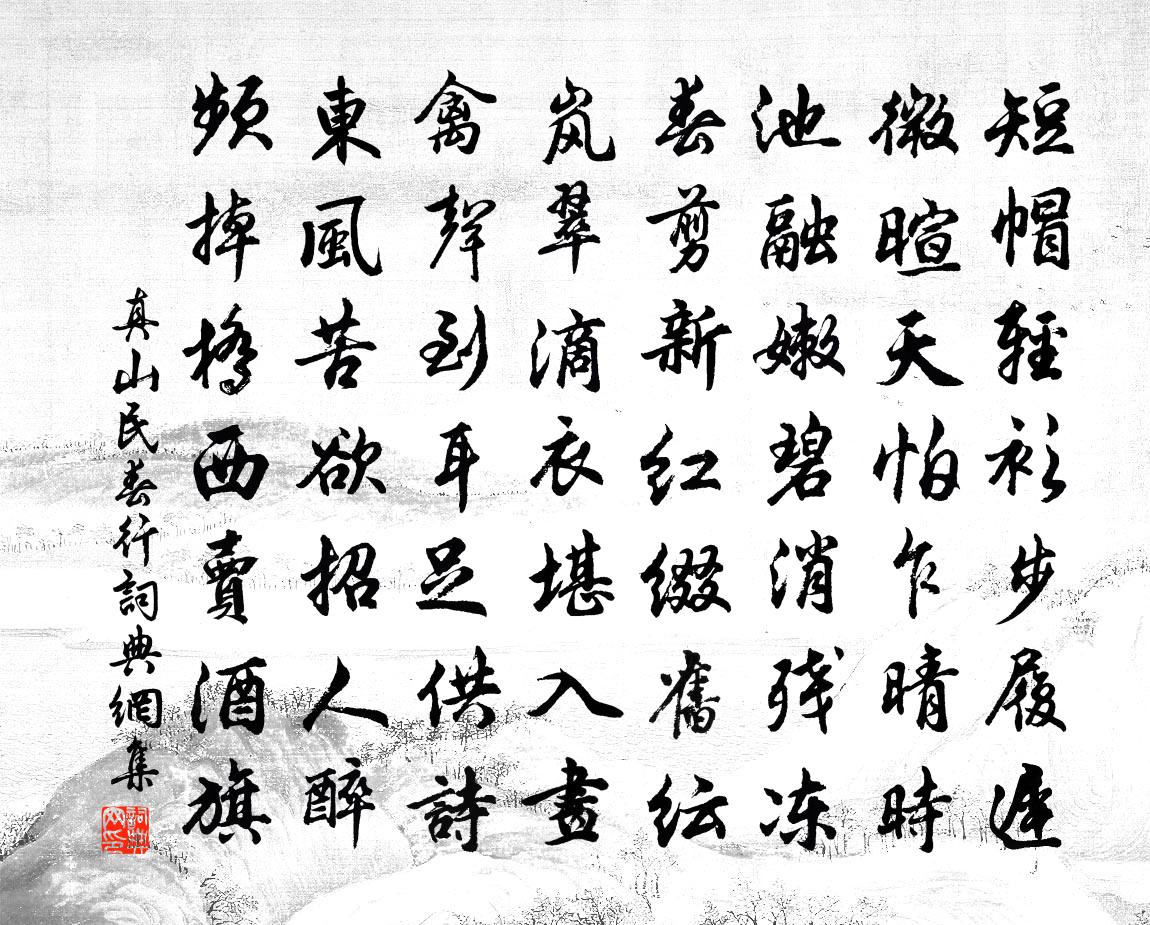 短帽輕衫步履遲
微暄天怕乍晴時
池融嫩碧消残冻
春剪新红缀舊纭
岚翠滴衣堪入畫
禽聲到耳足供詩
東風苦欲招人醉
頻掉橋西賣酒旗
真山民春行詞典網集
詞典网印